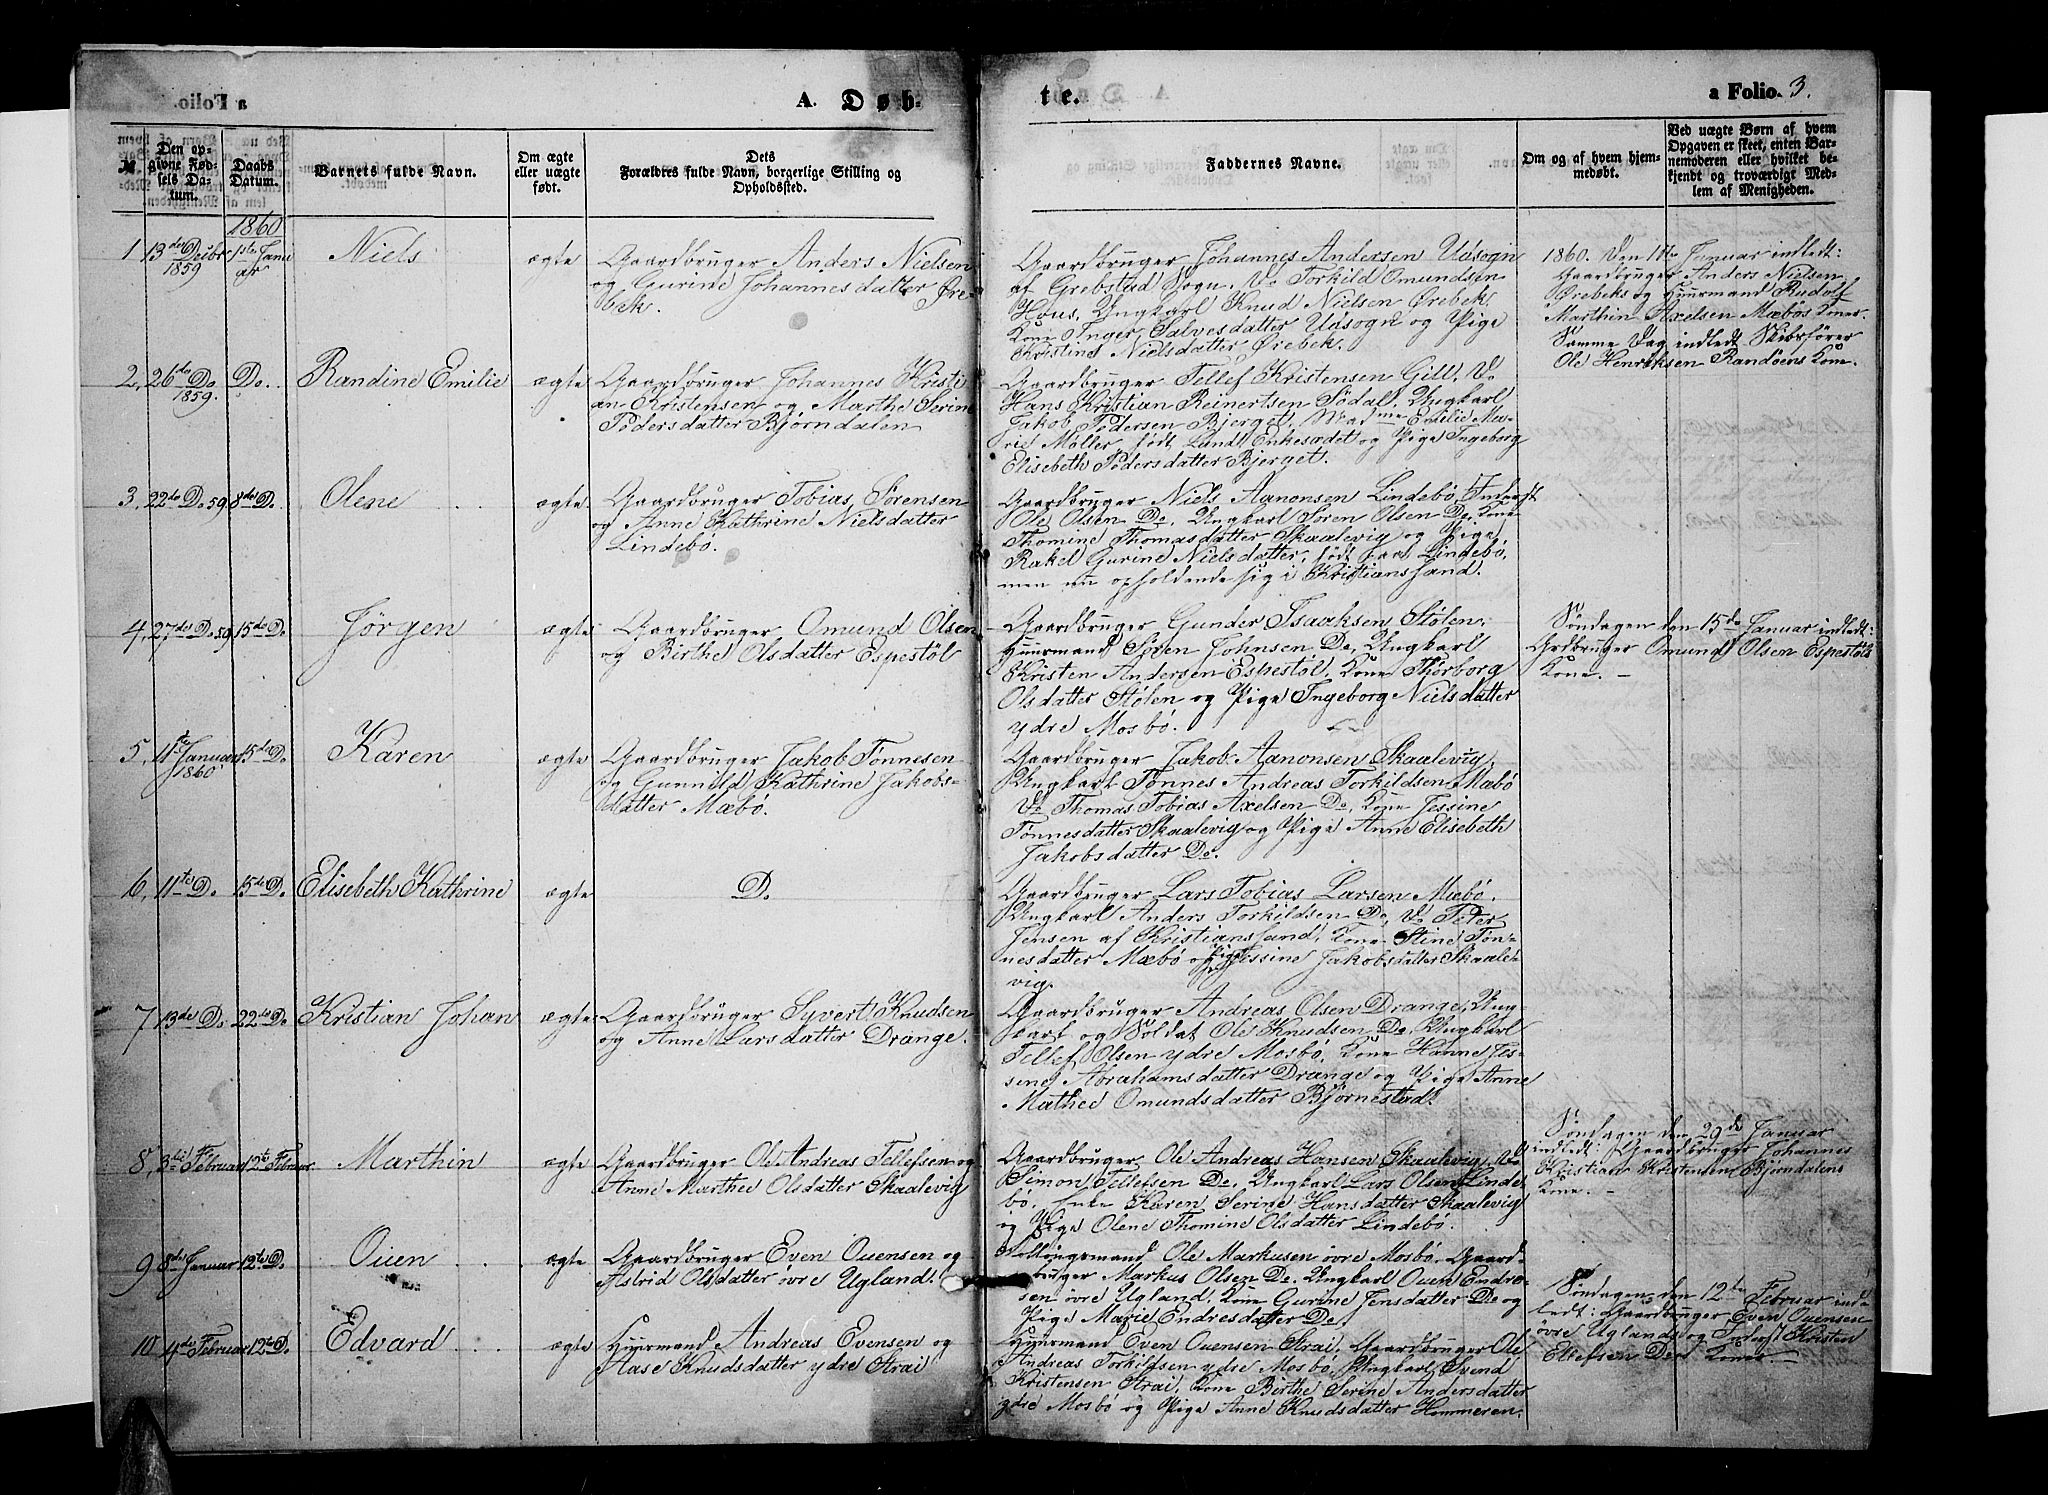 A. Døb-
te.
a Folio 3.
№
Den op-
givne Fød-
sels Da-
tum.
Daabs
Datum.
Barnets fulde Navn.
Om ægte
eller uægte
født.
Dets
Forældres fulde Navn, borgerlige Stilling og
Opholdssted.
Faddernes Navne.
Om og af hvem hjem-
medøbt.
Ved uægte Børn af hvem
Opgaven er skeet, enten Bar-
nemoderen eller hvilket be-
kjendt og troværdigt Med-
lem af Menigheden.
1860
1 13de Decbr 1859 1ste Janu
ar
Niels
ægte
Gaardbruger Anders Nielsen
og Gurine Johannesdatter Øre-
bek.
Gaardbruger Johannes Andersen Udsogn
af Grebstad Sogn. Do Torkild Omundsen
Hous, Ungkarl Knud Nielsen Ørebek,
Kone Inger Salvesdatter Udsogn og Pige
Kristine Nielsdatter Ørebek.
1860. Den 1ste Januar indledt:
Gaardbruger Anders Nielsen
Ørebeks og Huurmand Rudolf
Marthin Axelsen Mæbøs Koner.
Samme Dag indledt Skibsfører
Ole Henriksen Randøens Kone.
2, 26de Do 1859. Do.
Randine Emilie
ægte
Gaardbruger Johannes Kristi
an Kristensen og Marthe Serine
Pedersdatter Bjørndalen
Gaardbruger Tellef Kristensen Gill, Do
Hans Kristian Reinertsen Sødal. Ungkarl
Jakob Pedersen Bjerget, Madme Emilie Ma-
rie Møller, født Lundt Enkesædet og Pige Ingeborg
Elisebeth Pedersdatter Bjerget.
3, 22de D. 59 8de D.
Olene
ægte.
Gaardbruger Tobias Sørensen
og Anne Kathrine Nielsdatter
Lindebø.
Gaardbruger Niels Aanonsen Lindebø, Inderst
Ole Olsen Do, Ungkarl Søren Olsen Do, Kone
Thomine Thomasdatter Skaalevig og Pige
Rakel Gurine Nielsdatter, født paa Lindebø,
men nu opholdende sig i Kristianssand.
4, 27de D. 59 15de D.
Jørgen
ægte
Gaardbruger Omund Olsen
og Birthe Olsdatter Espestøl
Gaardbruger Gunder Isaaksen Stølen,
Huurmand Søren Johnsen Do, Ungkarl
Kristen Andersen Espestøl, Kone Thorborg
Olsdatter Stølen og Pige Ingeborg Nielsdatter
ydre Mosbø.
Søndagen den 15de Januar indledt:
Grdbruger Omund Olsen Espestøls
Kone. -
5, 11te Januar 1860 15de D.
Karen
ægte
Gaardbruger Jakob Tønnesen
og Gunnild Kathrine Jakobs-
datter Mæbø.
Gaardbruger Jakob Aanonsen Skaalevig,
Ungkarl Tønnes Andreas Torkildsen Mæbø
Do Thomas Tobias Axelsen Do, Kone Jessine
Tønnesdatter Skaalevig og Pige Anne Elisebeth
Jakobsdatter Do.
6, 11te D. 15de D.
Elisebeth Kathrine
ægte
D.
Gaardbruger Lars Tobias Larsen Mæbø.
Ungkarl Anders Torkildsen Do, Do Peter
Jensen af Kristianssand, Kone Stine Tøn-
nesdatter Mæbø og Pige Jessine Jakobsdatter Skaale-
vig.
7 13de D. 22de D.
Kristian Johan
ægte
Gaardbruger Syvert Knudsen
og Anne Larsdatter Drange.
Gaardbruger Andreas Olsen Drange, Ung-
karl og Soldat Ole Knudsen Do, Ungkarl
Tellef Olsen ydre Mosbø, Kone Hanne Jes-
sine Abrahamsdatter Drange og Pige Anne
Mathee Omundsdatter Bjørnestad.
8, 3die Februar 12te Februar
Marthin
ægte
Gaardbruger Ole Andreas Tellefsen og
Anne Marthee Olsdatter Skaalevig
Gaardbruger Ole Andreas Hansen Skaalevig, Do
Simon Tellefsen Do, Ungkarl Lars Olsen Linde
bø, Enke Karen Serine Hansdatter Skaalevig
og Pige Olene Thomine Olsdatter Lindebø.
Søndagen den 29de Januar
indledt: Gaardbruger Johannes
Kristian Kristensen Bjørndalens
Kone. -
9 8de Januar 12te D.
Ouen
ægte
Gaardbruger Even Ouensen og
Astrid Olsdatter øvre Ugland.
Ole Markusen øvre Mosbø, Gaard-
bruger Markus Olsen Do, Ungkarl Ouen Endre-
sen øvre Ugland, Kone Gurine Jensdatter Do og
Pige Marie Endresdatter Do.
10 4de Februar 12te D.
Edvard
ægte
Huurmand Andreas Evensen og
Aase Knudsdatter ydre Strai
Huurmand Even Ouensen Strai, Gaardbruger Ole
Andreas Torkildsen ydre Mosbø, Ungkarl Svend
Kristensen Strai, Kone Birthe Serine Andersdatter
ydre Mosbø og Pige Anne Knudsdatter Hommeren.
Søndagen den 12te Februar ind-
ledt: Gaardbruger Even Ouensen
øvre Uglands og Inderst Kristen
Ellefsen Do Koner. -